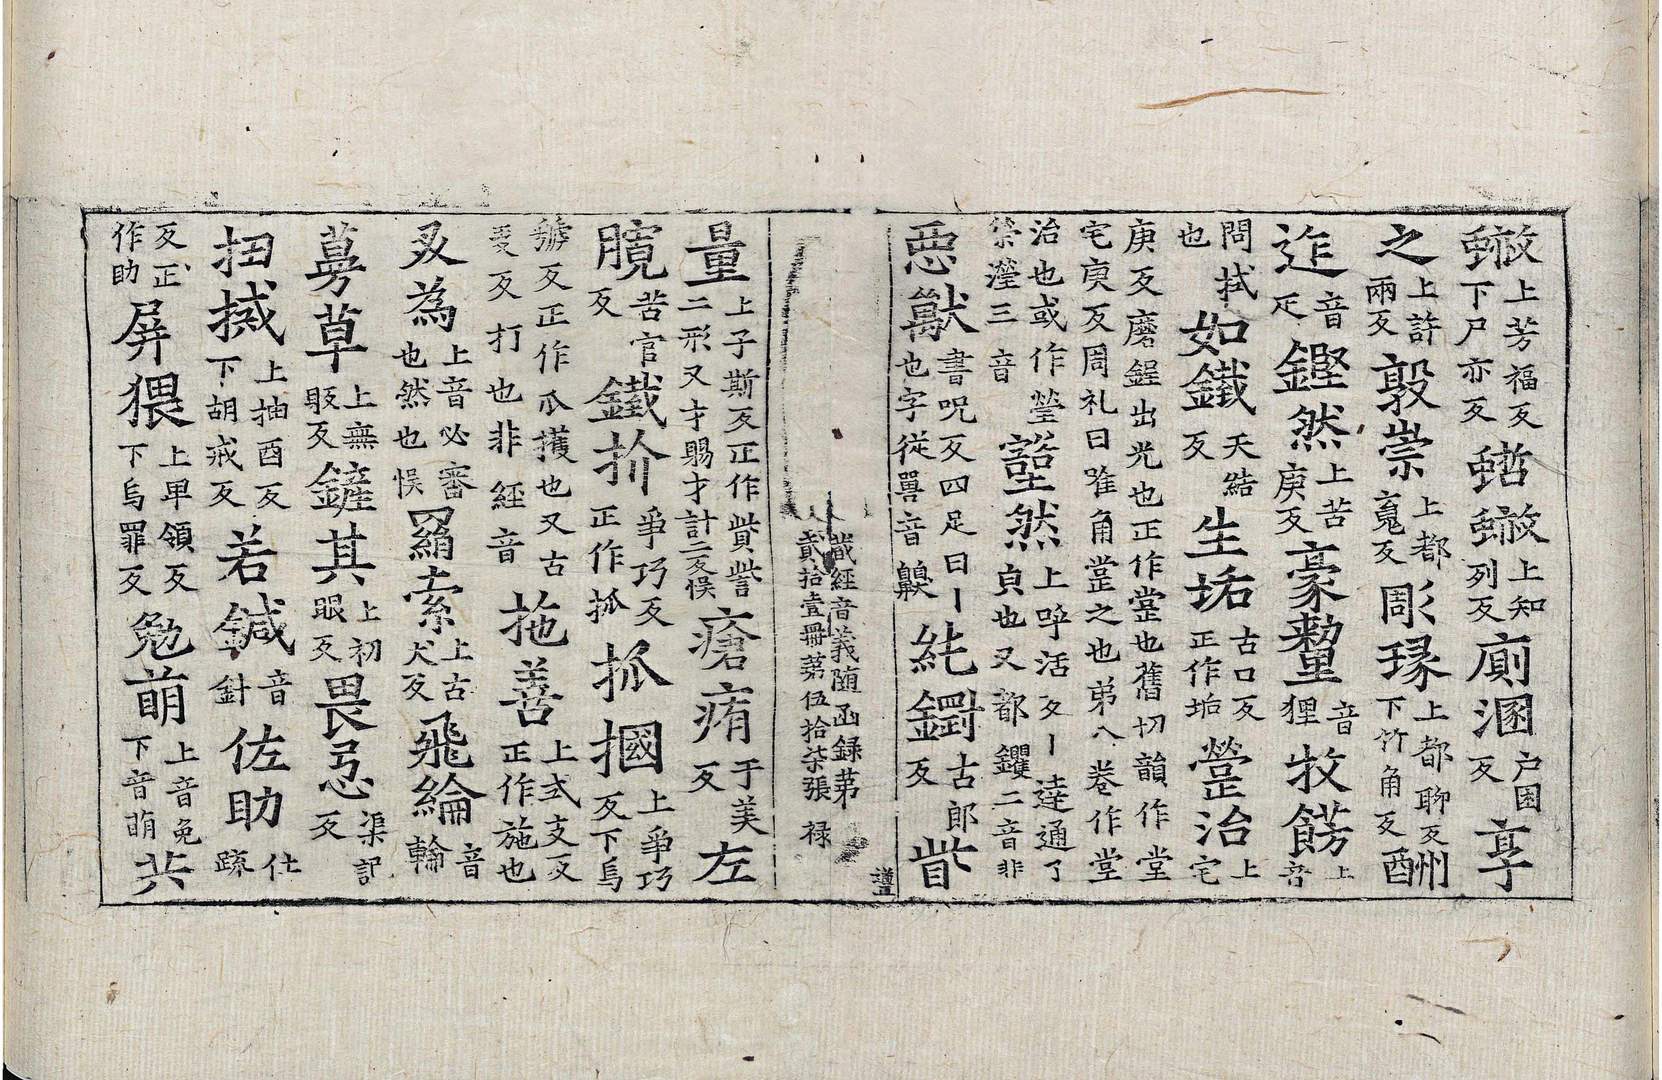 蝮上芳福反下尸亦反蜇螫上知列反廁溷户困反享
之上許兩反㪟崇上都䨟反彫琢上都聊反下竹角反酬州
迮音疋鏗然上苦庚反豪𣯛音狸牧餝上音
問拭也如鐵天結反生垢古口反正作垢瑩治上宅
庚反磨鋥出光也正作堂也舊切韻作堂
宅庚反周礼曰唯角堂之也弟八卷作堂
治也或作瑩榮瀅三音豁然上呼活反丨達通了貞也又都钁二音非
惡獸書呪反四足曰丨也字從嘼音齅純鋼古郎反訾
藏經音義随函録苐貳拾壹冊苐伍拾柒張 禄
道
量上子斯反正作貲訾二形又才賜才計二反悮瘡痏于美反左
臗苦官反鐵扴爭巧反正作抓抓摑上爭巧反下烏
虢反正作㧓擭也又古麦反打也非經音施善上式支反正作施也
叐為上音必審也然也悮羂索上古犬反飛綸音輪
蕚草上無販反鏟其上初眼反畏忌渠記反
扭搣上抽酉反下胡戒反若鍼音針佐助仕踈
反正作助屏猥上畢領反下烏罪反勉萌上音免下音萠共